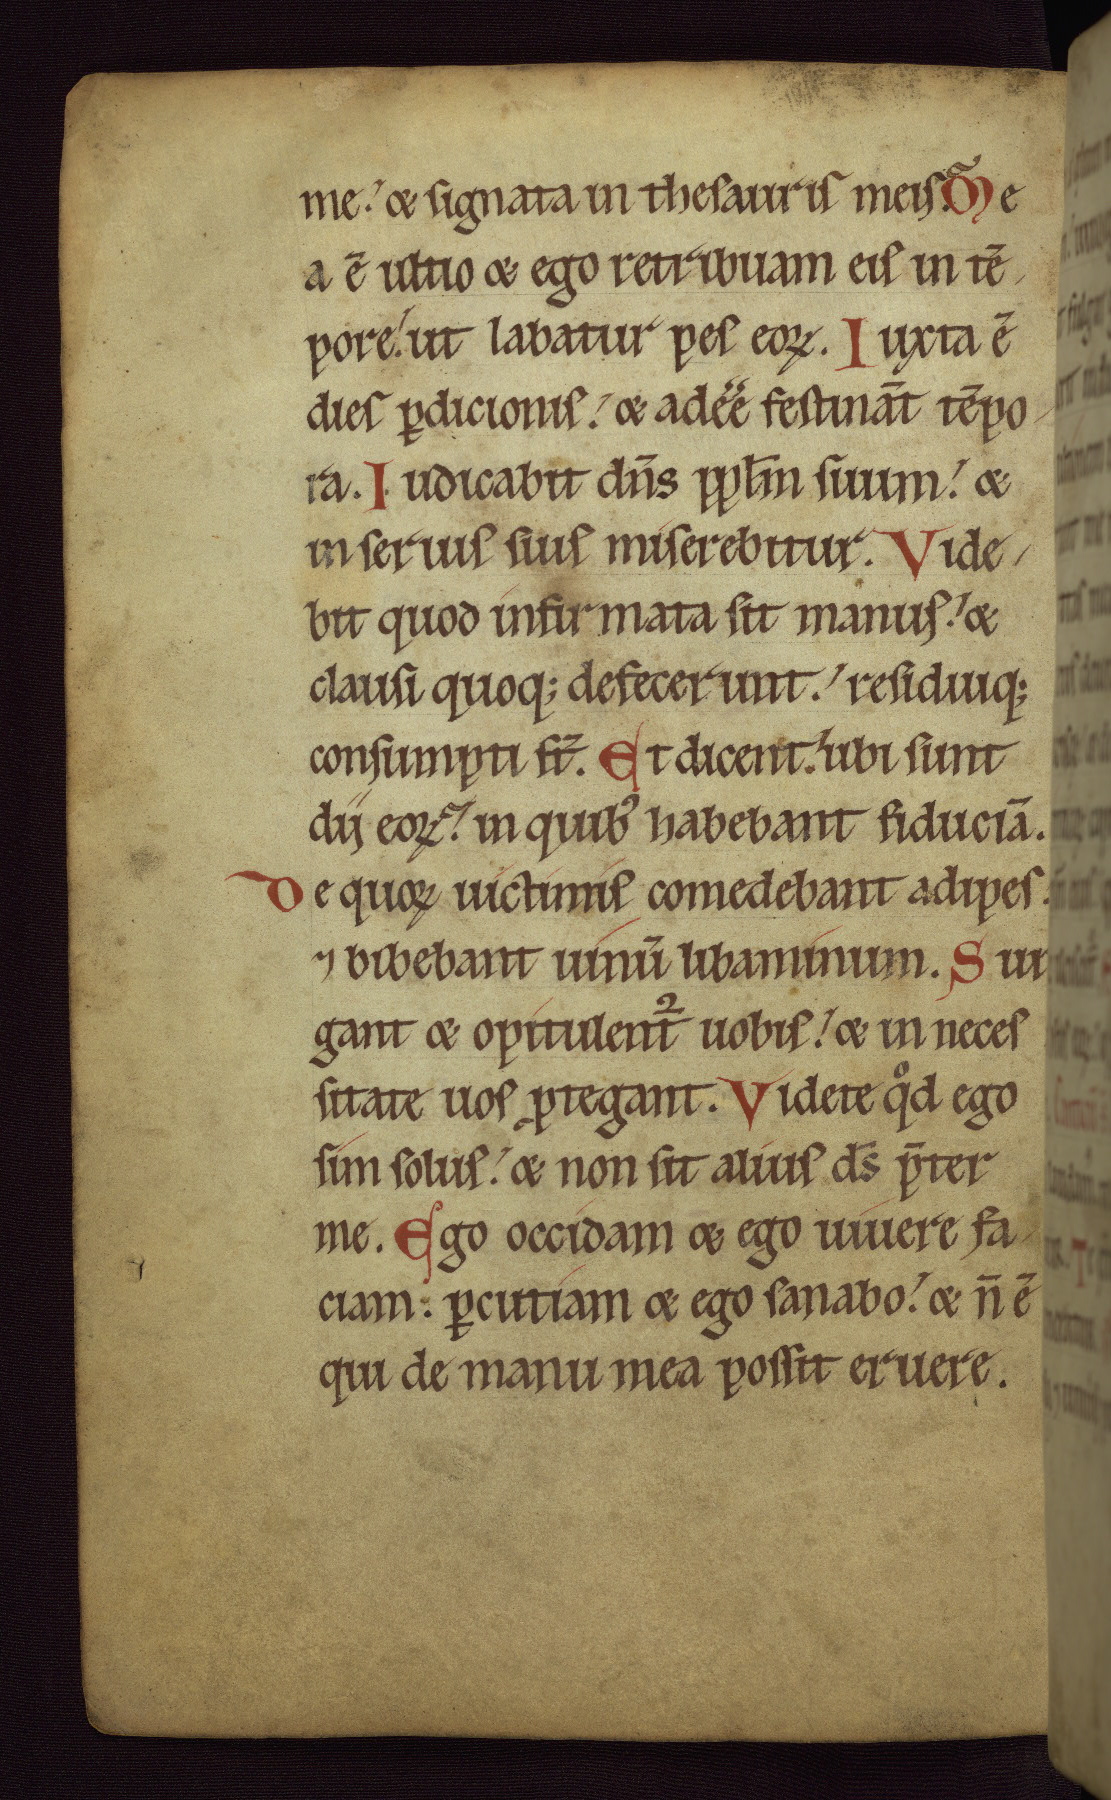 me. & signata in thesauris meis. Me
a ē ultio & ego retribuam eis in tē
pore. ut labatur pes eoꝝ. Iuxta ē
dies ꝑdicionis. & adeēē festināt tēpo
ra. Iudicabit dn̄s pp̄lm suum. &
in seruis suis miserebitur. Vide
bit quod infirmata sit manus. &
clausi quoq; defecerunt. residuiq;
consumpti st̄. Et dicent. ubi sunt
dij eoꝝ? in quibꝰ habebant fiduciā.
De quoꝝ uictimis comedebant adipes.
⁊ bibebant uinū libaminum. Sur
gant & opitulent᷑ uobis. & in neces
sitate uos ꝓtegant. Videte qͦd ego
sim solus. & non sit alius ds̄ p̄ter
me. Ego occidam & ego uiuere fa
ciam. ꝑcutiam & ego sanabo. & n̄ ē
qui de manu mea possit eruere.